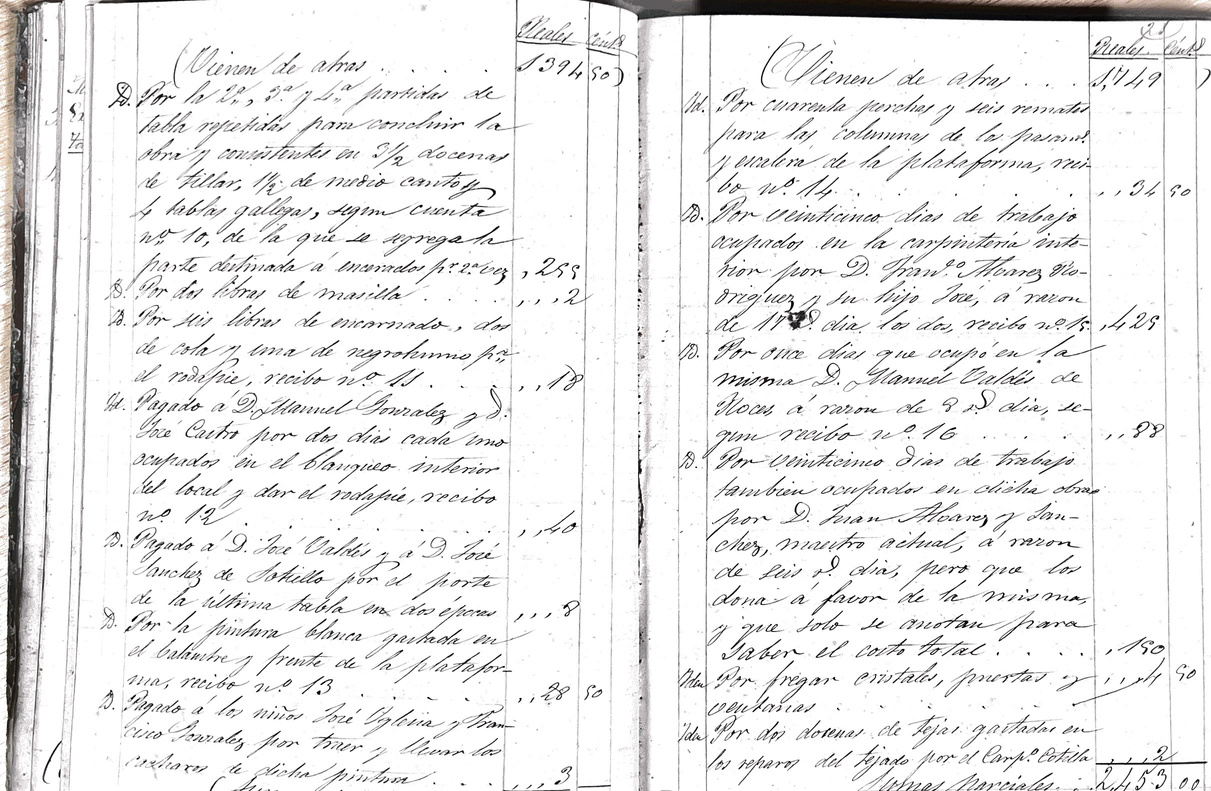 Reales cént.s
(Vienen de atras . . . . 1394 50)
Id. Por la 2.ª, 3.ª y 4.ª partidas de
tabla repetidas para concluir la
obra y consistentes en 3½ docenas
de tillar, 1½ de medio canto y
4 tablas gallegas, segun cuenta
n.º 10, de la que se segrega la
parte destinada á encerados p.r 2.ª vez ,255
Id. Por dos libras de masilla . . . . ,,,2
Id. Por seis libras de encarnado, dos
de cola y una de negrohumo p.ª
el rodapié, recibo n.º 11 . . . ,,18
Id. Pagado á D. Manuel Gonzalez y D.
José Castro por dos dias cada uno
ocupados en el blanqueo interior
del local y dar el rodapié, recibo
n.º 12 . . . . . . ,,40
Id. Pagado á D. José Valdés y á D. José
Sanchez de Sotiello por el porte
de la última tabla en dos épocas ,,,8
Id. Por la pintura blanca gastada en
el balaustre y frente de la platafor-
ma, recibo n.º 13 . . . . . ,,28 50
Id. Pagado á los niños José Yglesia y Fran-
cisco Gonzalez por traer y llevar los
cacharos de dicha pintura . . . ,,,3
21
Reales. Cént.s
(Vienen de atras . . . 1,749 )
Id. Por cuarenta perchas y seis remates
para las columnas de los pasam.s
y escalera de la plataforma, reci-
bo n.º 14 . . . . . . ,,34 50
Id. Por veinticinco dias de trabajo
ocupados en la carpintería inte-
rior por D. Fran.co Alvarez Ro-
driguez y su hijo José, á razon
de 17 r.s dia, los dos, recibo n.º 15 ,425
Id. Por once dias que ocupó en la
misma D. Manuel Valdés de
Roces á razon de 8 r.s dia, se-
gun recibo n.º 16 . . . . . ,,88
Id. Por veinticinco dias de trabajo
tambien ocupados en dicha obra
por D. Juan Alvarez y San-
chez, maestro actual, á razon
de seis r.s dia, pero que los
dona á favor de la misma,
y que solo se anotan para
saber el costo total . . . . ,150
Idem Por fregar cristales, puertas y ,,,4 50
ventanas . . . . .
Idem Por dos docenas de tejas gastadas en
los reparos del tejado por el Carp.º Cotilla ,,,2
Sumas parciales . 2,453 00